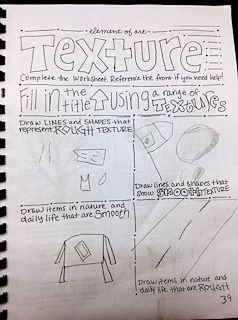 element of art
Texture
Complete the Worksheet. Reference the front if you need help!
Fill in the
title ↑ using a range of
TEXTURES
Draw LINES and SHAPES that
represent ROUGH TEXTURE
Draw lines and shapes that
show SMOOTH TEXTURE
Draw items in nature and
daily life that are Smooth
Draw items in nature and
daily life that are ROUGH
39